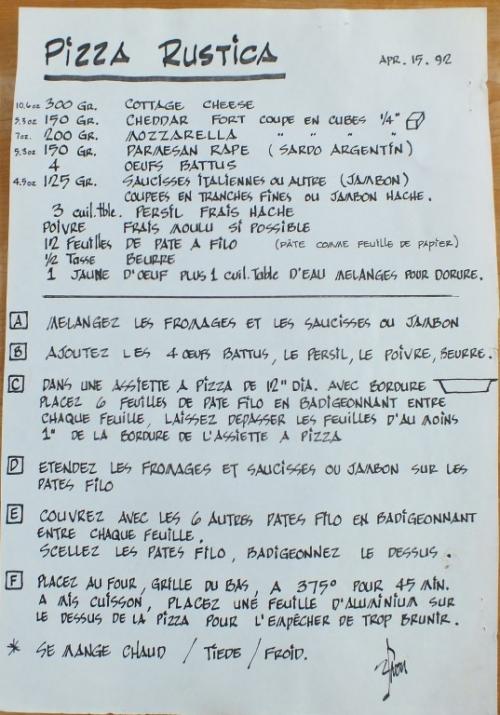 PIZZA RUSTICA
APR. 15. 92
10.6oz 300 GR. COTTAGE CHEESE
5.3oz 150 GR. CHEDDAR FORT COUPE EN CUBES 1/4"
7oz. 200 GR. MOZZARELLA " " " "
5.3oz 150 GR. PARMESAN RAPE (SARDO ARGENTIN)
4 OEUFS BATTUS
4.5oz 125 GR. SAUCISSES ITALIENNES OU AUTRE (JAMBON)
COUPEES EN TRANCHES FINES OU JAMBON HACHE.
3 cuil. tble. PERSIL FRAIS HACHE
POIVRE FRAIS MOULU SI POSSIBLE
12 FEUILLES DE PATE A FILO (PÂTE COMME FEUILLE DE PAPIER)
1/2 TASSE BEURRE
1 JAUNE D'OEUF PLUS 1 CUIL. TABLE D'EAU MELANGES POUR DORURE.
A MELANGEZ LES FROMAGES ET LES SAUCISSES OU JAMBON
B AJOUTEZ LES 4 OEUFS BATTUS, LE PERSIL, LE POIVRE, BEURRE.
C DANS UNE ASSIETTE A PIZZA DE 12" DIA. AVEC BORDURE
PLACEZ 6 FEUILLES DE PATE FILO EN BADIGEONNANT ENTRE
CHAQUE FEUILLE, LAISSEZ DEPASSER LES FEUILLES D'AU MOINS
1" DE LA BORDURE DE L'ASSIETTE A PIZZA
D ETENDEZ LES FROMAGES ET SAUCISSES OU JAMBON SUR LES
PATES FILO
E COUVREZ AVEC LES 6 AUTRES PATES FILO EN BADIGEONNANT
ENTRE CHAQUE FEUILLE.
SCELLEZ LES PATES FILO, BADIGEONNEZ LE DESSUS.
F PLACEZ AU FOUR, GRILLE DU BAS, A 375° POUR 45 MIN.
A MIS CUISSON, PLACEZ UNE FEUILLE D'ALUMINIUM SUR
LE DESSUS DE LA PIZZA POUR L'EMPÊCHER DE TROP BRUNIR.
* SE MANGE CHAUD / TIEDE / FROID.